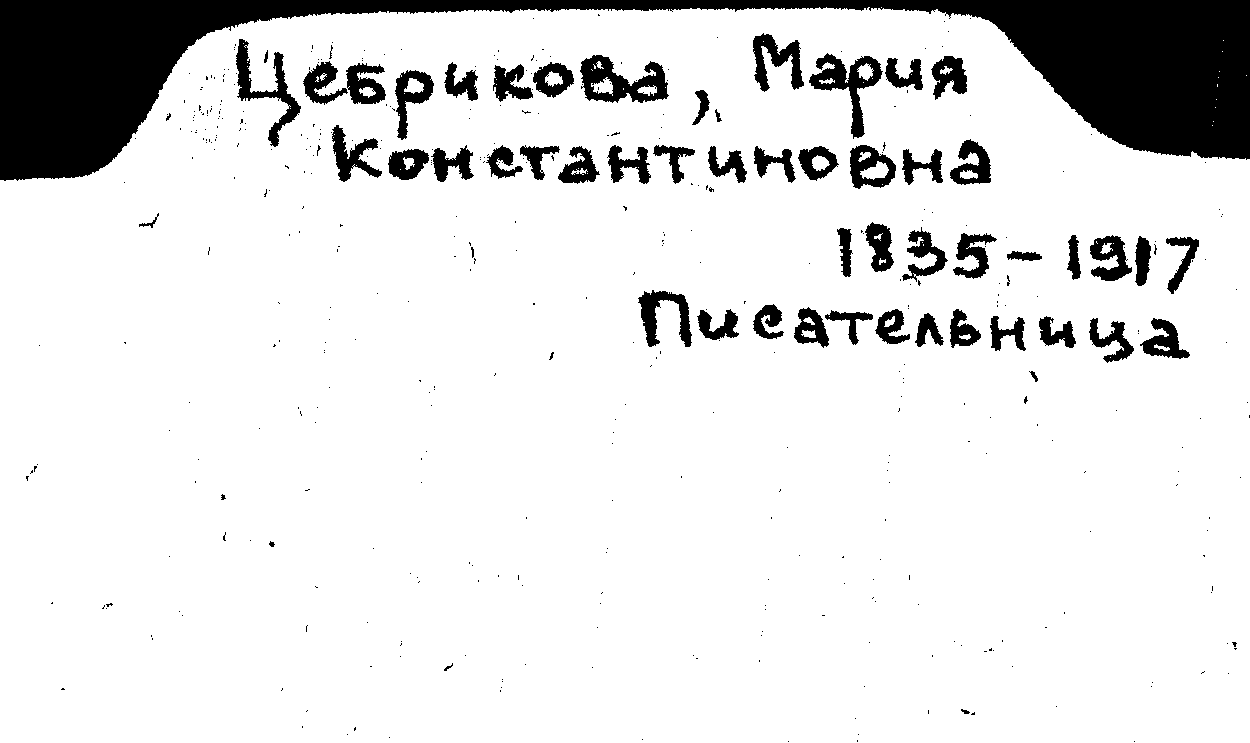 Цебрикова, Мария
Константиновна
1835-1917
Писательница